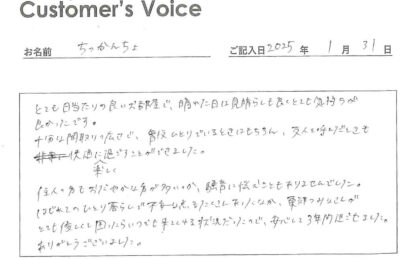 Customer's Voice
お名前 ちっかんちょ ご記入日 2025 年 1 月 31 日
とても日当たりの良いお部屋で、晴れた日は見晴らしも良くとても気持ちが
良かったです。
十分な間取りと広さで、普段ひとりでいるときはもちろん、友人を呼んだときも
快適に過ごすことができました。
楽しく
住人の方もおだやかな方が多いのか、騒音に悩むこともありませんでした。
はじめてのひとり暮らしで不安な点もたくさんあったなか、みなさんが
とても優しくて困ったらいつでも 状況だったので、安心して 年間過ごせました。
ありがとうございました。